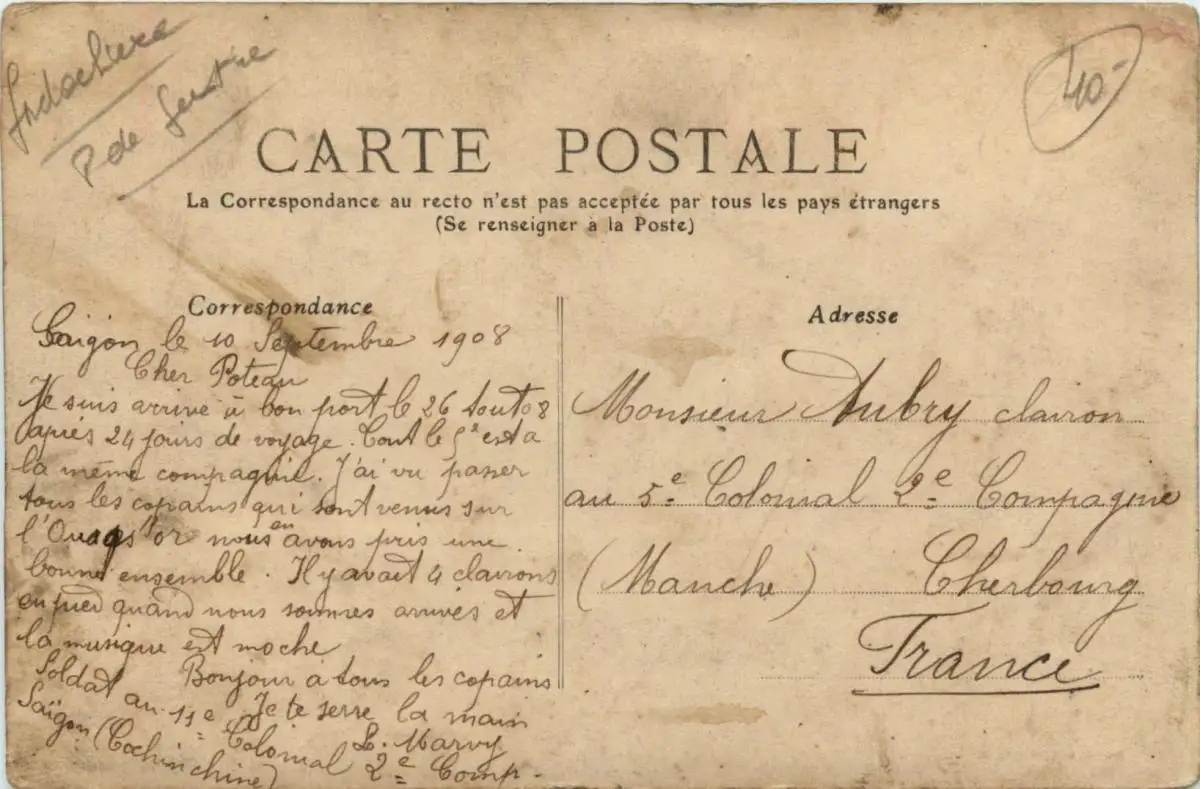 Indochine
P de Gentre
40-
CARTE POSTALE
La Correspondance au recto n'est pas acceptée par tous les pays étrangers
(Se renseigner à la Poste)
Correspondance
Saïgon le 10 Septembre 1908
Cher Poteau
Je suis arrivé à bon port le 26 aout 08
après 24 jours de voyage. Tout le 5e est a
la même compagnie. J'ai vu passer
tous les copains qui sont venus sur
l'Ouags"or nous en avons pris une
bonne ensemble. Il y avait 4 clairons
en pied quand nous sommes arrivés et
la musique est moche
Bonjour à tous les copains
Je te serre la main
L. Marvy
Soldat au 11e Colonial 2e Comp.
Saïgon (Cochinchine)
Adresse
Monsieur Aubry clairon
au 5e Colonial 2e Compagnie
(Manche) Cherbourg
France